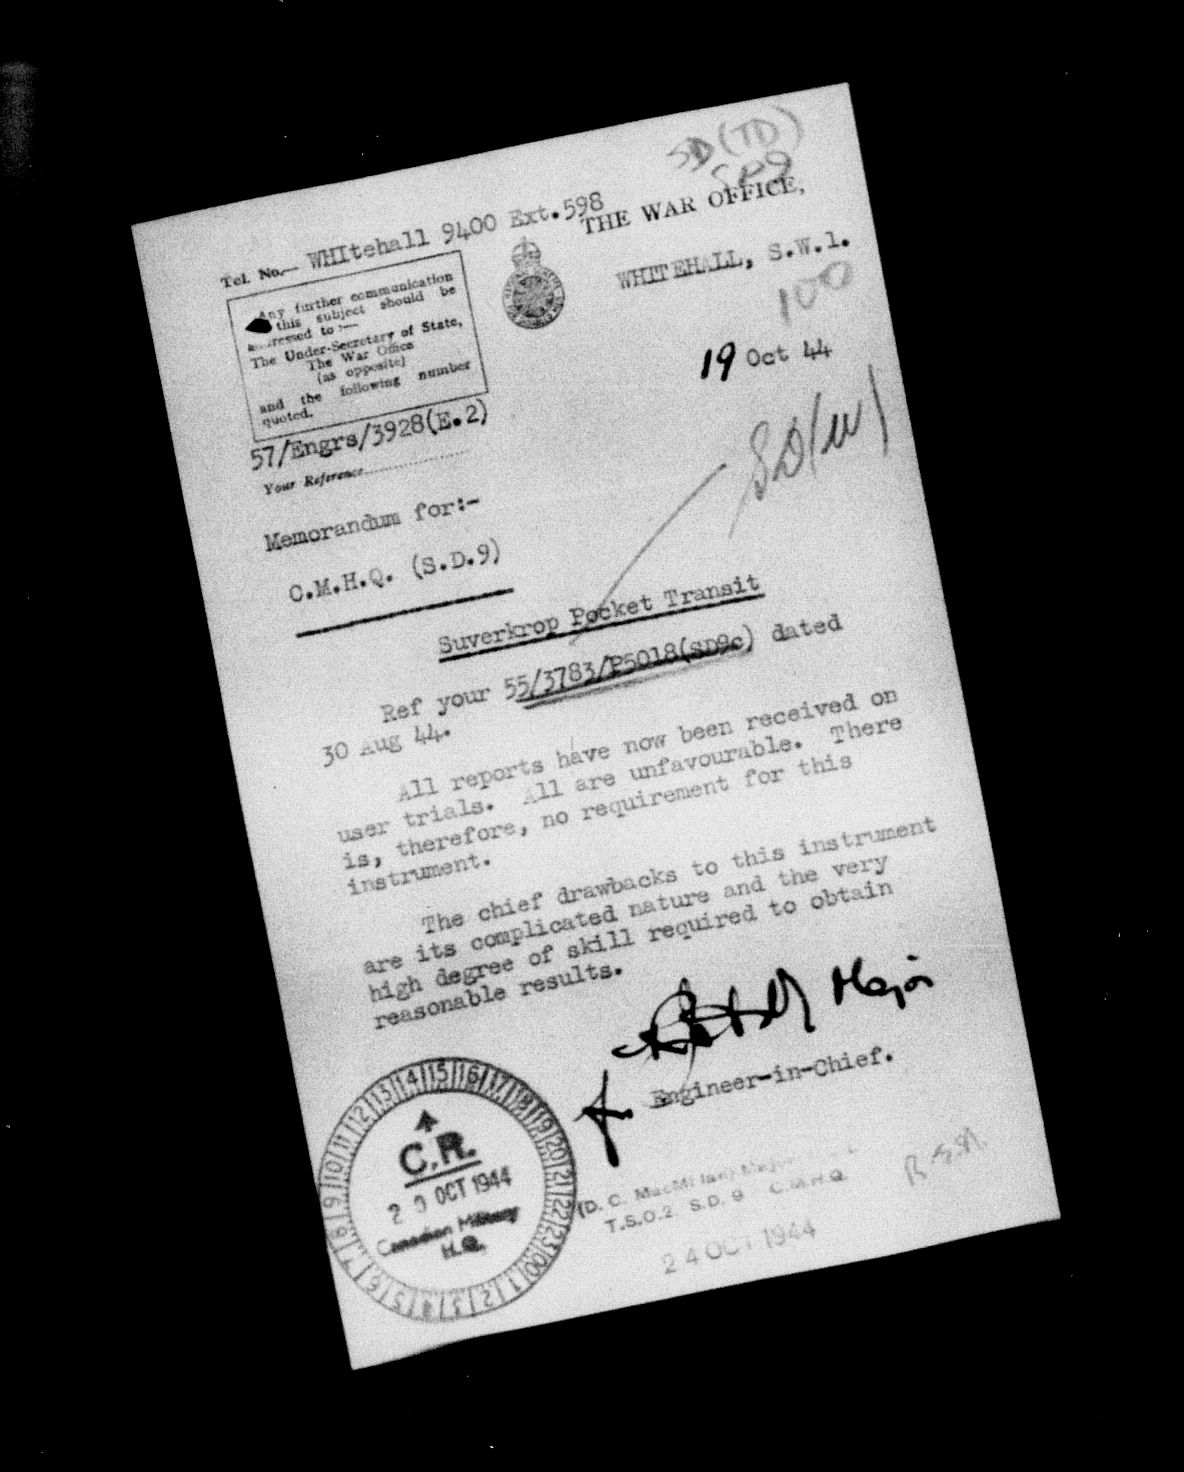 SD (TD)
SP9
Tel. No.— WHItehall 9400 Ext.598
THE WAR OFFICE,
WHITEHALL, S.W.1.
100
Any further communication
this subject should be
to :—
The Under-Secretary of State,
The War Office
(as opposite)
and the following number
quoted.
19 Oct 44
57/Engrs/3928(E.2)
SD(W)
Your Reference
Memorandum for:-
C.M.H.Q. (S.D.9)
Suverkrop Pocket Transit
Ref your 55/3783/P5018(SD9c) dated
30 Aug 44.
All reports have now been received on
user trials. All are unfavourable. There
is, therefore, no requirement for this
instrument.
The chief drawbacks to this instrument
are its complicated nature and the very
high degree of skill required to obtain
reasonable results.
Major
Engineer-in-Chief.
13 14 15 16 17 18 19 20 21 22 23 00 1 2 3 4 5 6 7 8 9 10 11 12
C.R.
OCT 1944
Canadian Military
H.Q.
(D. C. MacMillan) Major
T.S.O.2. S.D. 9 C.M.H.Q.
24 OCT 1944